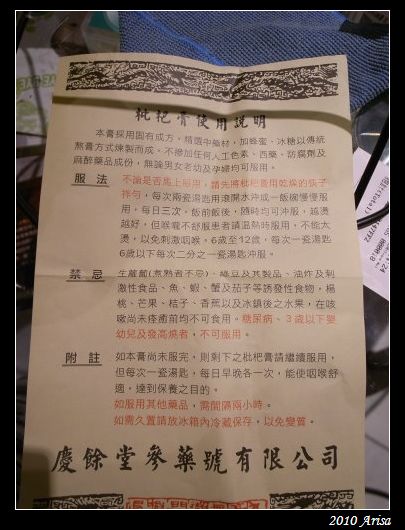 枇杷膏使用說明
本膏採用固有成方，精選中藥材，加蜂蜜、冰糖以傳統
熬膏方式煉製而成。不摻加任何人工色素、西藥、防腐劑及
麻醉藥品成份，無論男女老幼及孕婦均可服用。
服法
不論是否馬上服用，請先將枇杷膏用乾燥的筷子
拌勻，每次兩瓷湯匙用滾開水沖成一飯碗慢慢服
用，每日三次，飯前飯後，隨時均可沖服，越燙
越好，但喉嚨不舒服患者請溫熱時服用，不能太
燙，以免刺激咽喉。6歲至12歲，每次一瓷湯匙，
6歲以下每次二分之一瓷湯匙沖服。
禁忌
生蘿蔔(煮熟者不忌)、綠豆及其製品、油炸及刺
激性食品、魚、蝦、蟹及茄子等誘發性食物，楊
桃、芒果、桔子、香蕉以及冰鎮後之水果，在咳
嗽尚未痊癒前均不可食用。糖尿病、3歲以下嬰
幼兒及發高燒者，不可服用。
附註
如本膏尚未服完，則剩下之枇杷膏請繼續服用，
但每次一瓷湯匙，每日早晚各一次，能使咽喉舒
適，達到保養之目的。
如服用其他藥品，需間隔兩小時。
如需久置請放冰箱內冷藏保存，以免變質。
慶餘堂參藥號有限公司
2010 Arisa